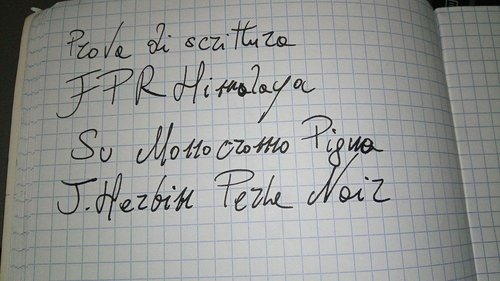 Prova di scrittura
FPR Himalaya
Su Monocromo Pigna
J. Herbin Perle Noir